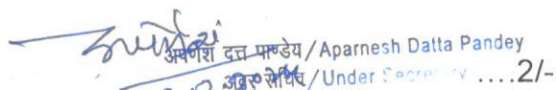 अपर्णेश दत्त पाण्डेय / Aparnesh Datta Pandey
अवर सचिव / Under Secretary ....2/-